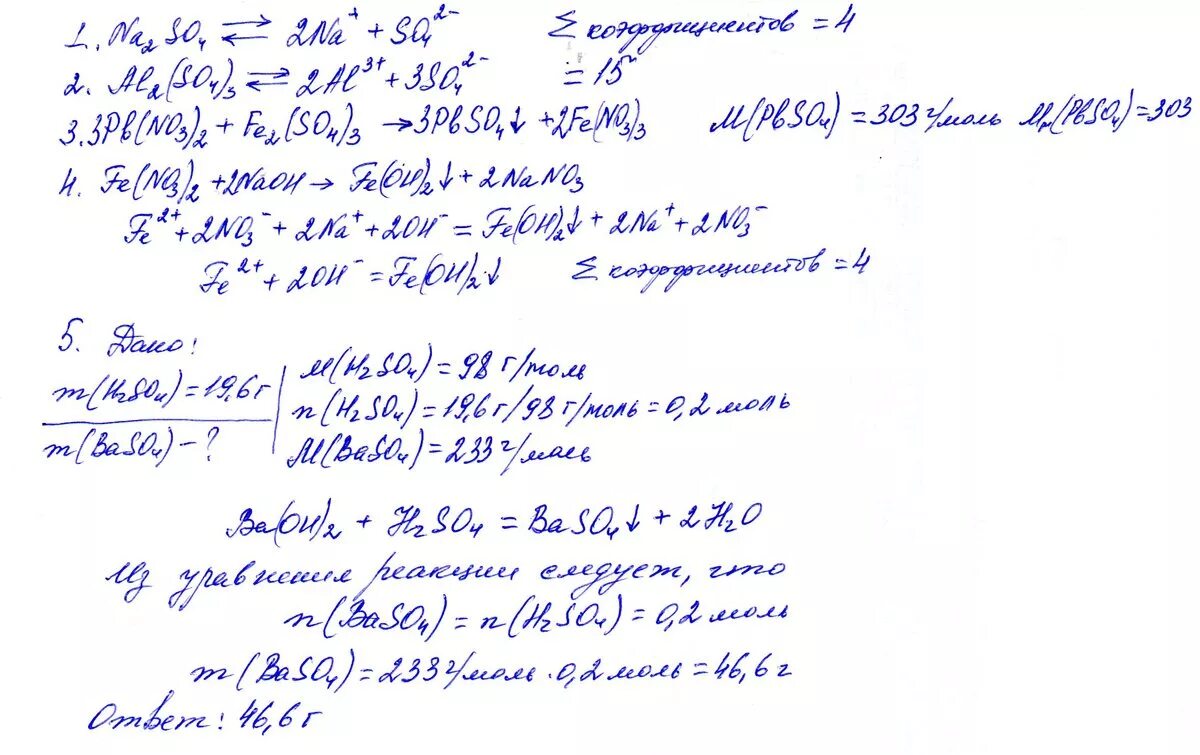 1. Na₂SO₄ ⇄ 2Na⁺ + SO₄²⁻ Σ коэффициентов = 4
2. Al₂(SO₄)₃ ⇄ 2Al³⁺ + 3SO₄²⁻ = 15
3. 3Pb(NO₃)₂ + Fe₂(SO₄)₃ → 3PbSO₄↓ + 2Fe(NO₃)₃ M(PbSO₄) = 303 г/моль Mr(PbSO₄) = 303
4. Fe(NO₃)₂ + 2NaOH → Fe(OH)₂↓ + 2NaNO₃
Fe²⁺ + 2NO₃⁻ + 2Na⁺ + 2OH⁻ = Fe(OH)₂↓ + 2Na⁺ + 2NO₃⁻
Fe²⁺ + 2OH⁻ = Fe(OH)₂↓ Σ коэффициентов = 4
5. Дано:
m(H₂SO₄) = 19,6 г
m(BaSO₄) – ?
M(H₂SO₄) = 98 г/моль
n(H₂SO₄) = 19,6 г/98 г/моль = 0,2 моль
M(BaSO₄) = 233 г/моль
Ba(OH)₂ + H₂SO₄ = BaSO₄↓ + 2H₂O
Из уравнения реакции следует, что
n(BaSO₄) = n(H₂SO₄) = 0,2 моль
m(BaSO₄) = 233 г/моль · 0,2 моль = 46,6 г
Ответ: 46,6 г